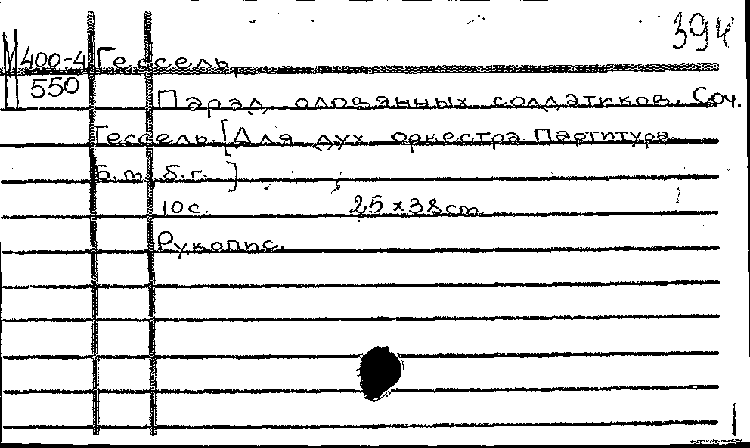 394
М 400-4 Гессель
550
Парад оловянных солдатиков. Соч.
Гессель [Для дух оркестра Партитура
Б.м., б.г. ]
10 с. 25 x 38 cm
Рукопис.